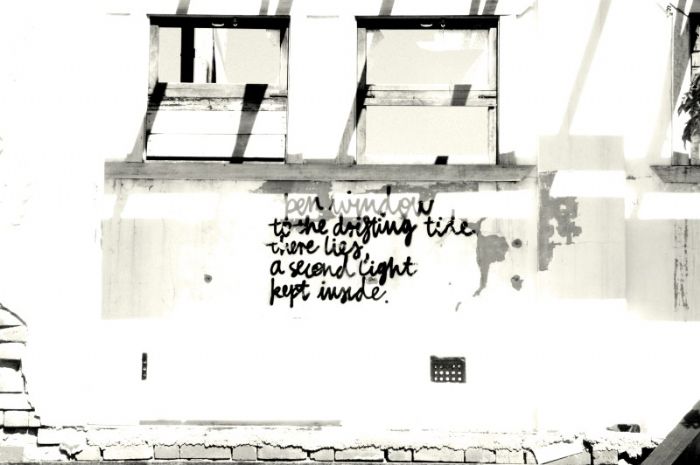 pen window
to the drifting tide
there lies,
a second light
kept inside.